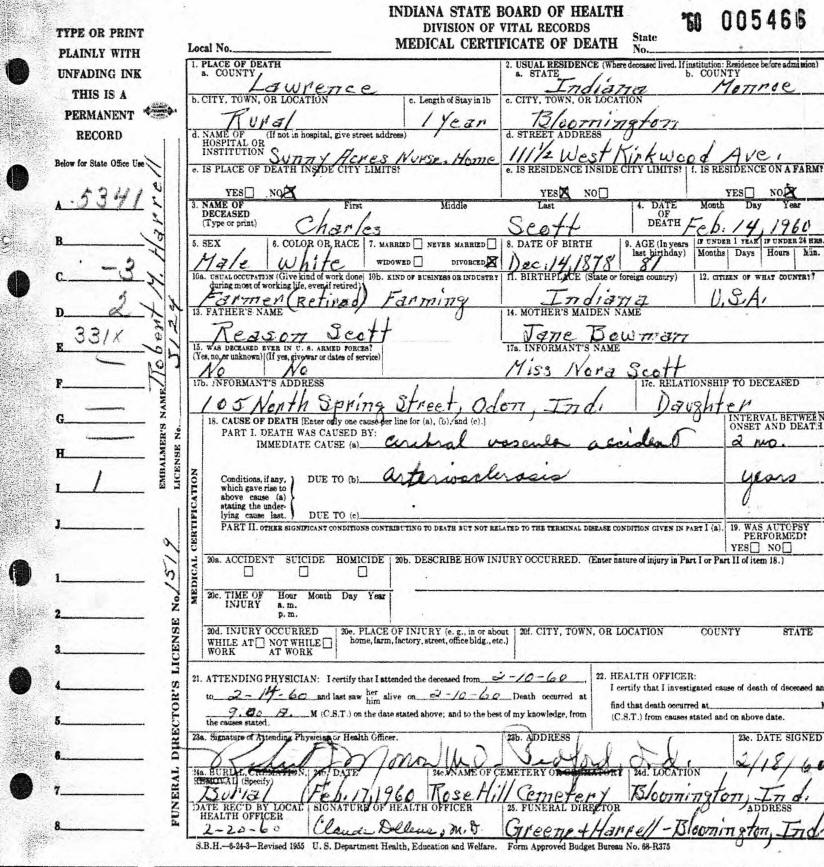 INDIANA STATE BOARD OF HEALTH
DIVISION OF VITAL RECORDS
MEDICAL CERTIFICATE OF DEATH
'60 005466
Local No.
State No.
TYPE OR PRINT
PLAINLY WITH
UNFADING INK
THIS IS A
PERMANENT
RECORD
Below for State Office Use
A 5341
B
C -3
D 2
E 331X
F
G
H
I 1
J
1
2
3
4
5
6
7
8
EMBALMER'S NAME Robert M. Harrell LICENSE No. 5124
FUNERAL DIRECTOR'S LICENSE No. 1519
MEDICAL CERTIFICATION
1. PLACE OF DEATH
a. COUNTY
Lawrence
2. USUAL RESIDENCE (Where deceased lived. If institution: Residence before admission)
a. STATE b. COUNTY
Indiana Monroe
b. CITY, TOWN, OR LOCATION c. Length of Stay in 1b
Rural 1 Year
c. CITY, TOWN, OR LOCATION
Bloomington
d. NAME OF HOSPITAL OR INSTITUTION (If not in hospital, give street address)
Sunny Acres Nurse. Home
d. STREET ADDRESS
111½ West Kirkwood Ave.
e. IS PLACE OF DEATH INSIDE CITY LIMITS?
YES☐ NO☒
e. IS RESIDENCE INSIDE CITY LIMITS? f. IS RESIDENCE ON A FARM?
YES☒ NO☐ YES☐ NO☒
3. NAME OF DECEASED (Type or print) First Middle Last
Charles Scott
4. DATE OF DEATH Month Day Year
Feb. 14, 1960
5. SEX
Male
6. COLOR OR RACE
White
7. MARRIED ☐ NEVER MARRIED ☐
WIDOWED ☐ DIVORCED ☒
8. DATE OF BIRTH
Dec. 14, 1878
9. AGE (In years last birthday)
81
IF UNDER 1 YEAR IF UNDER 24 HRS.
Months Days Hours Min.
10a. USUAL OCCUPATION (Give kind of work done during most of working life, even if retired)
Farmer (Retired)
10b. KIND OF BUSINESS OR INDUSTRY
Farming
11. BIRTHPLACE (State or foreign country)
Indiana
12. CITIZEN OF WHAT COUNTRY?
U.S.A.
13. FATHER'S NAME
Reason Scott
14. MOTHER'S MAIDEN NAME
Jane Bowman
15. WAS DECEASED EVER IN U. S. ARMED FORCES?
(Yes, no, or unknown) (If yes, give war or dates of service)
No No
17a. INFORMANT'S NAME
Miss Nora Scott
17b. INFORMANT'S ADDRESS
105 North Spring Street, Odon, Ind.
17c. RELATIONSHIP TO DECEASED
Daughter
18. CAUSE OF DEATH [Enter only one cause per line for (a), (b), and (c).]
INTERVAL BETWEEN ONSET AND DEATH
PART I. DEATH WAS CAUSED BY:
IMMEDIATE CAUSE (a) cerebral vascular accident 2 mo.
Conditions, if any, which gave rise to above cause (a) stating the underlying cause last.
DUE TO (b) arteriosclerosis years
DUE TO (c)
PART II. OTHER SIGNIFICANT CONDITIONS CONTRIBUTING TO DEATH BUT NOT RELATED TO THE TERMINAL DISEASE CONDITION GIVEN IN PART I (a).
19. WAS AUTOPSY PERFORMED?
YES☐ NO☐
20a. ACCIDENT SUICIDE HOMICIDE
☐ ☐ ☐
20b. DESCRIBE HOW INJURY OCCURRED. (Enter nature of injury in Part I or Part II of item 18.)
20c. TIME OF INJURY Hour Month Day Year
a. m.
p. m.
20d. INJURY OCCURRED
WHILE AT WORK ☐ NOT WHILE AT WORK ☐
20e. PLACE OF INJURY (e. g., in or about home, farm, factory, street, office bldg., etc.)
20f. CITY, TOWN, OR LOCATION COUNTY STATE
21. ATTENDING PHYSICIAN: I certify that I attended the deceased from 2-10-60
to 2-14-60 and last saw her him alive on 2-10-60 Death occurred at
9:00 A. M (C.S.T.) on the date stated above; and to the best of my knowledge, from
the causes stated.
22. HEALTH OFFICER:
I certify that I investigated cause of death of deceased an
find that death occurred at M
(C.S.T.) from causes stated and on above date.
23a. Signature of Attending Physician or Health Officer.
Robert J. M.D.
23b. ADDRESS
Bedford, Ind.
23c. DATE SIGNED
2/18/60
24a. BURIAL, CREMATION, REMOVAL (Specify)
Burial
24b. DATE
Feb. 17, 1960
24c. NAME OF CEMETERY OR CREMATORY
Rose Hill Cemetery
24d. LOCATION
Bloomington, Ind.
DATE REC'D BY LOCAL HEALTH OFFICER
2-20-60
SIGNATURE OF HEALTH OFFICER
Claude Dollens, M.D
25. FUNERAL DIRECTOR ADDRESS
Greene & Harrell - Bloomington, Ind
S.B.H.—6-24-3—Revised 1955 U. S. Department Health, Education and Welfare. Form Approved Budget Bureau No. 68-R375